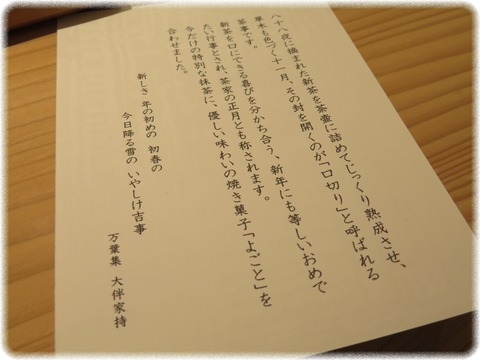 八十八夜に摘まれた新茶を茶壷に詰めてじっくり熟成させ、
草木も色づく十一月、その封を開くのが「口切り」と呼ばれる
茶事です。
新茶を口にできる喜びを分かち合う、新年にも等しいおめで
たい行事とされ、茶家の正月とも称されます。
今だけの特別な抹茶に、優しい味わいの焼き菓子「よごと」を
合わせました。
新しき 年の初めの 初春の
今日降る雪の いやしけ吉事
万葉集 大伴家持